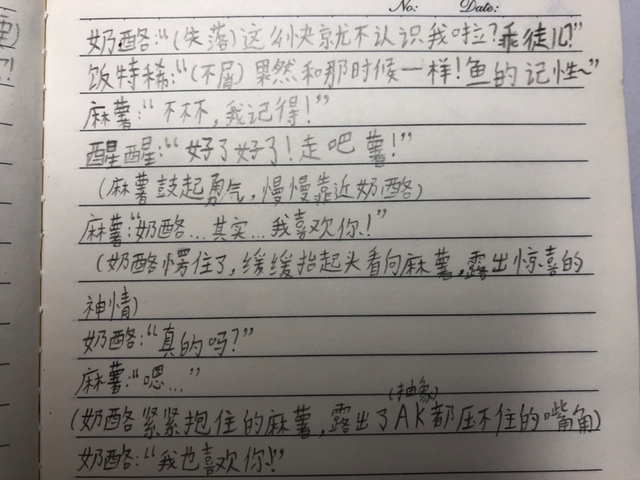 No: Date:
奶酪：“（失落）这么快就不认识我啦？乖徒儿？”
饭特稀：“（不屑）果然和那时候一样！鱼的记性~”
麻薯：“不不不，我记得！”
醒醒：“好了好了！走吧薯！”
（麻薯鼓起勇气，慢慢靠近奶酪）
麻薯：“奶酪...其实...我喜欢你！”
（奶酪愣住了，缓缓抬起头看向麻薯，露出惊喜的
神情）
奶酪：“真的吗？”
麻薯：“嗯...”
（抽象）
（奶酪紧紧抱住的麻薯，露出了AK都压不住的嘴角）
奶酪：“我也喜欢你！”